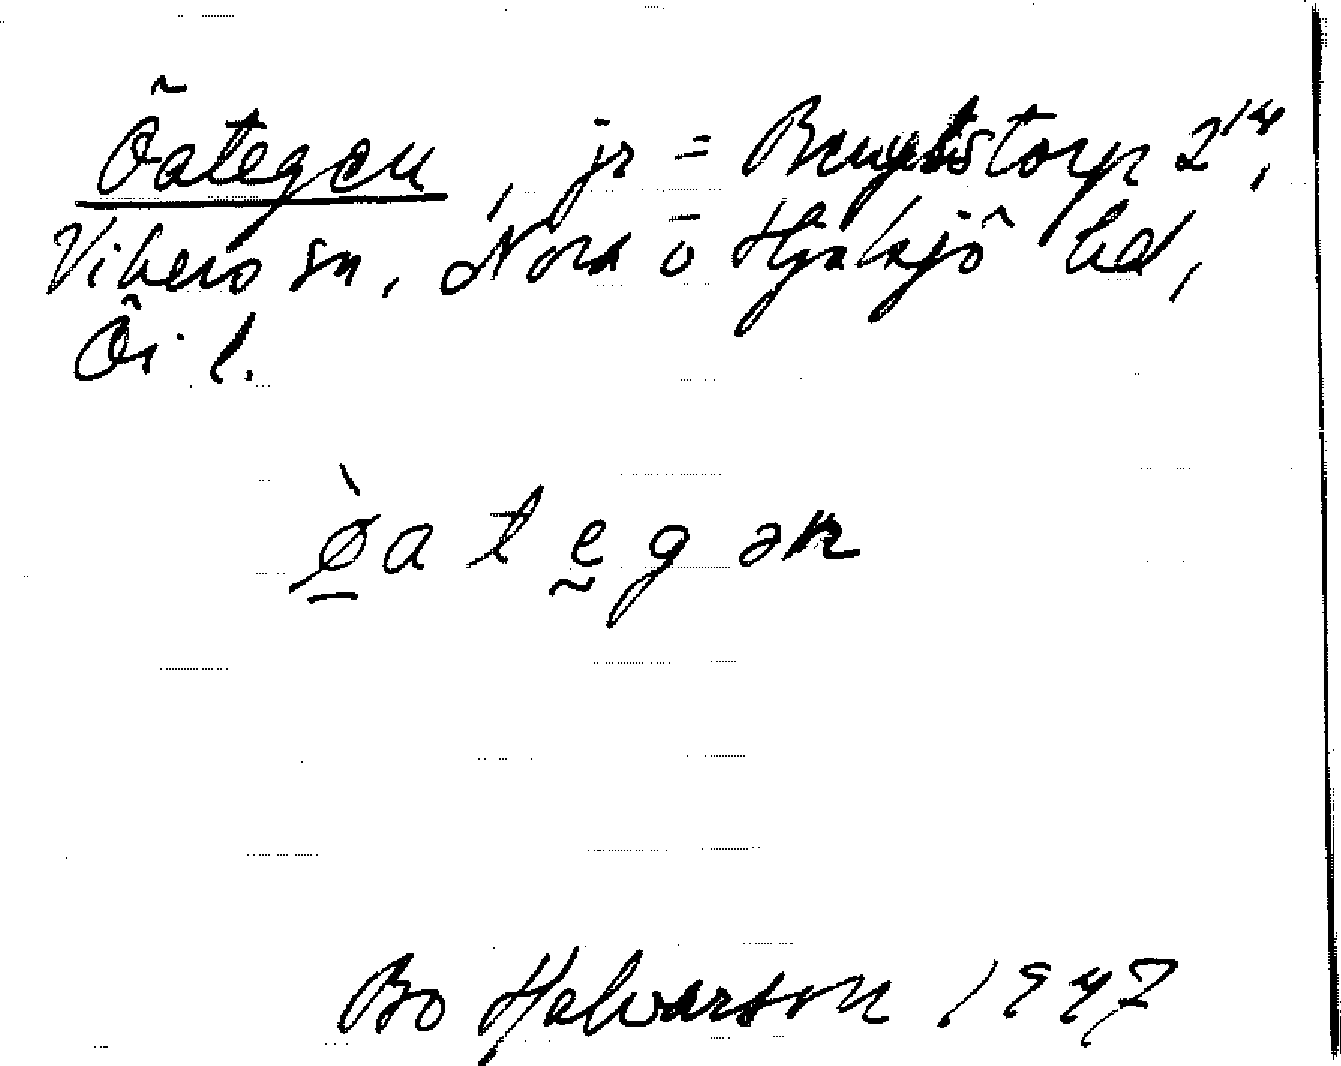 Öategen, jr = Bengtstorp 2¹⁴,
Vibero sn, Nora o Hjulsjö hd,
Ör l.
ø̀a t e g ən
Bo Halvarson 1947